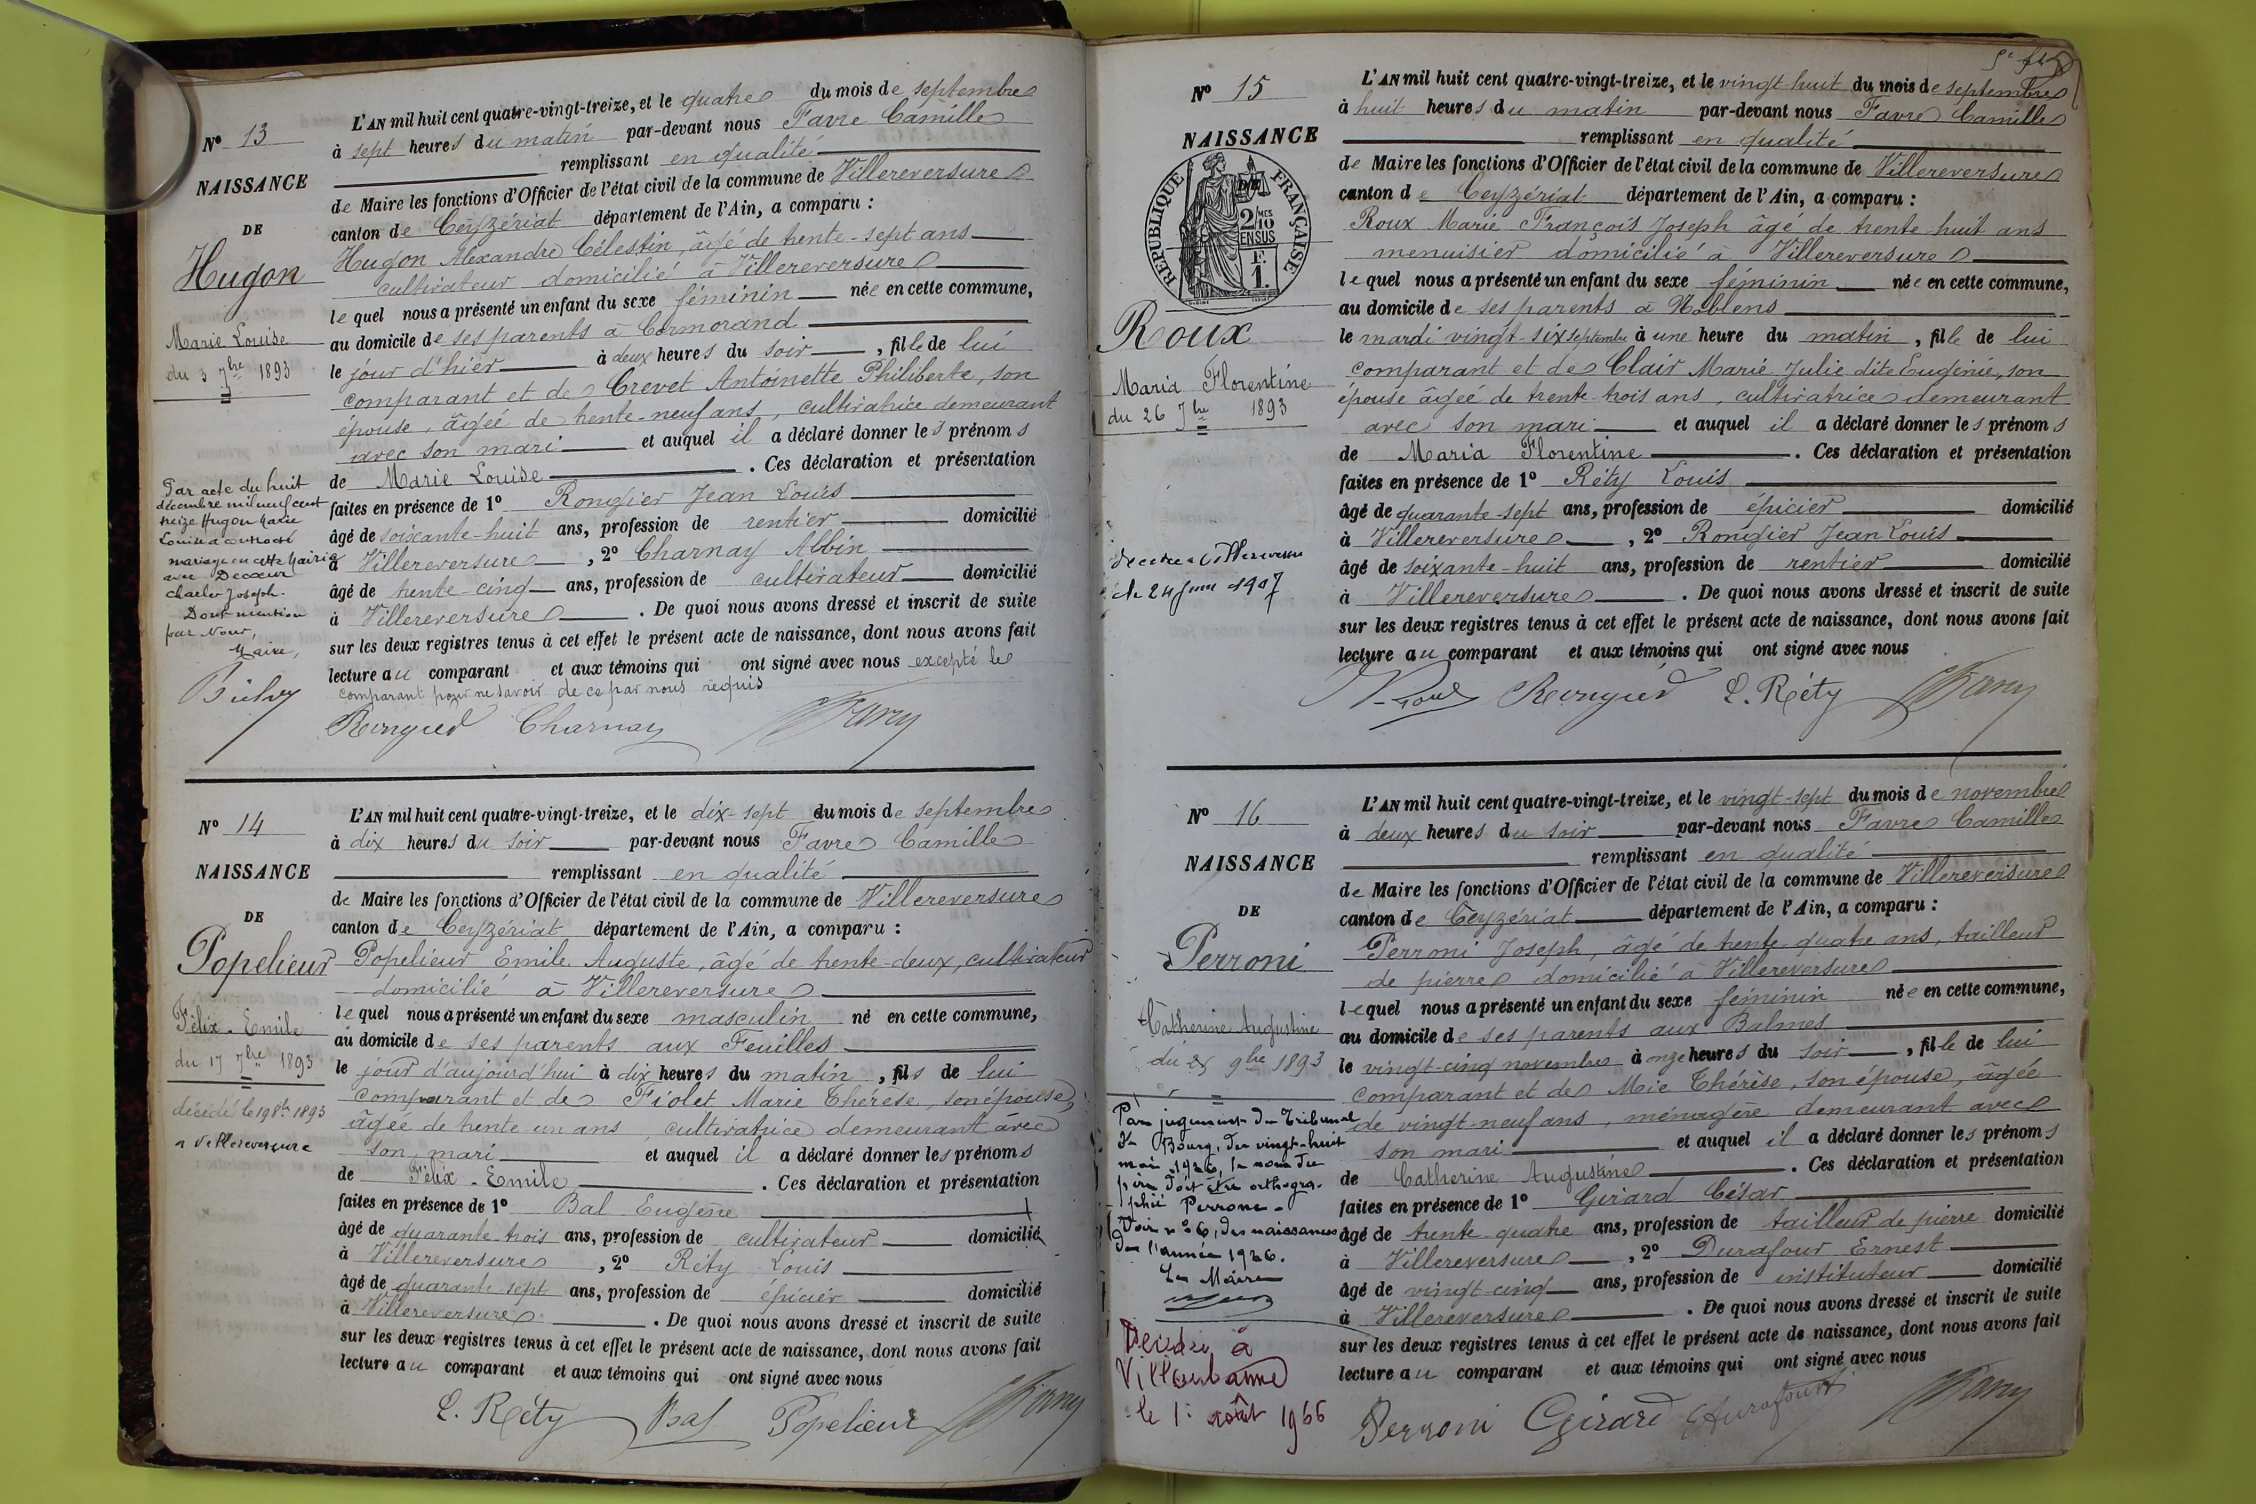 Nº 13
NAISSANCE
DE
Hugon
Marie Louise
du 3 7bre 1893
Par acte du huit
décembre mil neuf cent
treize Hugon Marie
Louise a contracté
mariage en cette Mairie
avec Decoeur
Charles Joseph.
Dont mention
par Nous,
Maire,
L'AN mil huit cent quatre-vingt-treize, et le quatre du mois de septembre
à sept heures du matin par-devant nous Favre Camille
remplissant en qualité
de Maire les fonctions d'Officier de l'état civil de la commune de Villereversure
canton de Ceyzériat département de l'Ain, a comparu :
Hugon Alexandre Célestin, âgé de trente-sept ans
cultivateur domicilié à Villereversure
lequel nous a présenté un enfant du sexe féminin née en cette commune,
au domicile de ses parents à Cormorand
le jour d'hier à deux heures du soir, fille de lui
comparant et de Crevet Antoinette Philiberte, son
épouse, âgée de trente-neuf ans, cultivatrice demeurant
avec son mari et auquel il a déclaré donner les prénoms
de Marie Louise. Ces déclaration et présentation
faites en présence de 1º Rongier Jean Louis
âgé de soixante-huit ans, profession de rentier domicilié
à Villereversure, 2º Charnay Albin
âgé de trente-cinq ans, profession de cultivateur domicilié
à Villereversure. De quoi nous avons dressé et inscrit de suite
sur les deux registres tenus à cet effet le présent acte de naissance, dont nous avons fait
lecture au comparant et aux témoins qui ont signé avec nous excepté le
comparant pour ne savoir de ce par nous requis
Charnay
Nº 14
NAISSANCE
DE
Popelieur
Félix-Emile
du 17 7bre 1893
décédé le 19 8bre 1893
à Villereversure
L'AN mil huit cent quatre-vingt-treize, et le dix-sept du mois de septembre
à dix heures du soir par-devant nous Favre Camille
remplissant en qualité
de Maire les fonctions d'Officier de l'état civil de la commune de Villereversure
canton de Ceyzériat département de l'Ain, a comparu :
Popelieur Emile Auguste, âgé de trente-deux, cultivateur
domicilié à Villereversure
lequel nous a présenté un enfant du sexe masculin né en cette commune,
au domicile de ses parents aux Feuilles
le jour d'aujourd'hui à dix heures du matin, fils de lui
comparant et de Fiolet Marie Thérèse, son épouse,
âgée de trente un ans, cultivatrice demeurant avec
son mari et auquel il a déclaré donner les prénoms
de Félix-Emile. Ces déclaration et présentation
faites en présence de 1º Bal Eugène
âgé de quarante-trois ans, profession de cultivateur domicilié
à Villereversure, 2º Réty Louis
âgé de quarante sept ans, profession de épicier domicilié
à Villereversure. De quoi nous avons dressé et inscrit de suite
sur les deux registres tenus à cet effet le présent acte de naissance, dont nous avons fait
lecture au comparant et aux témoins qui ont signé avec nous
L. Réty Bal Popelieur
Nº 15
NAISSANCE
DE
REPUBLIQUE FRANÇAISE
2/10 MES
EN SUS
F.
1.
Roux
Maria Florentine
du 26 7bre 1893
L'AN mil huit cent quatre-vingt-treize, et le vingt-huit du mois de septembre
à huit heures du matin par-devant nous Favre Camille
remplissant en qualité
de Maire les fonctions d'Officier de l'état civil de la commune de Villereversure
canton de Ceyzériat département de l'Ain, a comparu :
Roux Marie François Joseph âgé de trente-huit ans
menuisier domicilié à Villereversure
lequel nous a présenté un enfant du sexe féminin née en cette commune,
au domicile de ses parents à Noblens
le mardi vingt-six septembre à une heure du matin, fille de lui
comparant et de Clair Marie Julie dite Eugénie, son
épouse âgée de trente-trois ans, cultivatrice demeurant
avec son mari et auquel il a déclaré donner les prénoms
de Maria Florentine. Ces déclaration et présentation
faites en présence de 1º Réty Louis
âgé de quarante-sept ans, profession de épicier domicilié
à Villereversure, 2º Rongier Jean Louis
âgé de soixante-huit ans, profession de rentier domicilié
à Villereversure. De quoi nous avons dressé et inscrit de suite
sur les deux registres tenus à cet effet le présent acte de naissance, dont nous avons fait
lecture au comparant et aux témoins qui ont signé avec nous
L. Réty
Nº 16
NAISSANCE
DE
Perroni
Catherine Augustine
du 25 9bre 1893
Par jugement du Tribunal
de Bourg, du vingt-huit
mai 1926, le nom du
père doit être orthogra-
phié Perrone.
Voir nº 6, des naissances
de l'année 1926.
Le Maire
Décédée à
Villeurbanne
le 1er août 1966
L'AN mil huit cent quatre-vingt-treize, et le vingt-sept du mois de novembre
à deux heures du soir par-devant nous Favre Camille
remplissant en qualité
de Maire les fonctions d'Officier de l'état civil de la commune de Villereversure
canton de Ceyzériat département de l'Ain, a comparu :
Perroni Joseph, âgé de trente quatre ans, tailleur
de pierre domicilié à Villereversure
lequel nous a présenté un enfant du sexe féminin née en cette commune,
au domicile de ses parents aux Balmes
le vingt-cinq novembre à onze heures du soir, fille de lui
comparant et de Thérèse, son épouse, âgée
de vingt-neuf ans, ménagère demeurant avec
son mari et auquel il a déclaré donner les prénoms
de Catherine Augustine. Ces déclaration et présentation
faites en présence de 1º Girard César
âgé de trente quatre ans, profession de tailleur de pierre domicilié
à Villereversure, 2º Durafour Ernest
âgé de vingt-cinq ans, profession de instituteur domicilié
à Villereversure. De quoi nous avons dressé et inscrit de suite
sur les deux registres tenus à cet effet le présent acte de naissance, dont nous avons fait
lecture au comparant et aux témoins qui ont signé avec nous
Perroni Girard EDurafour